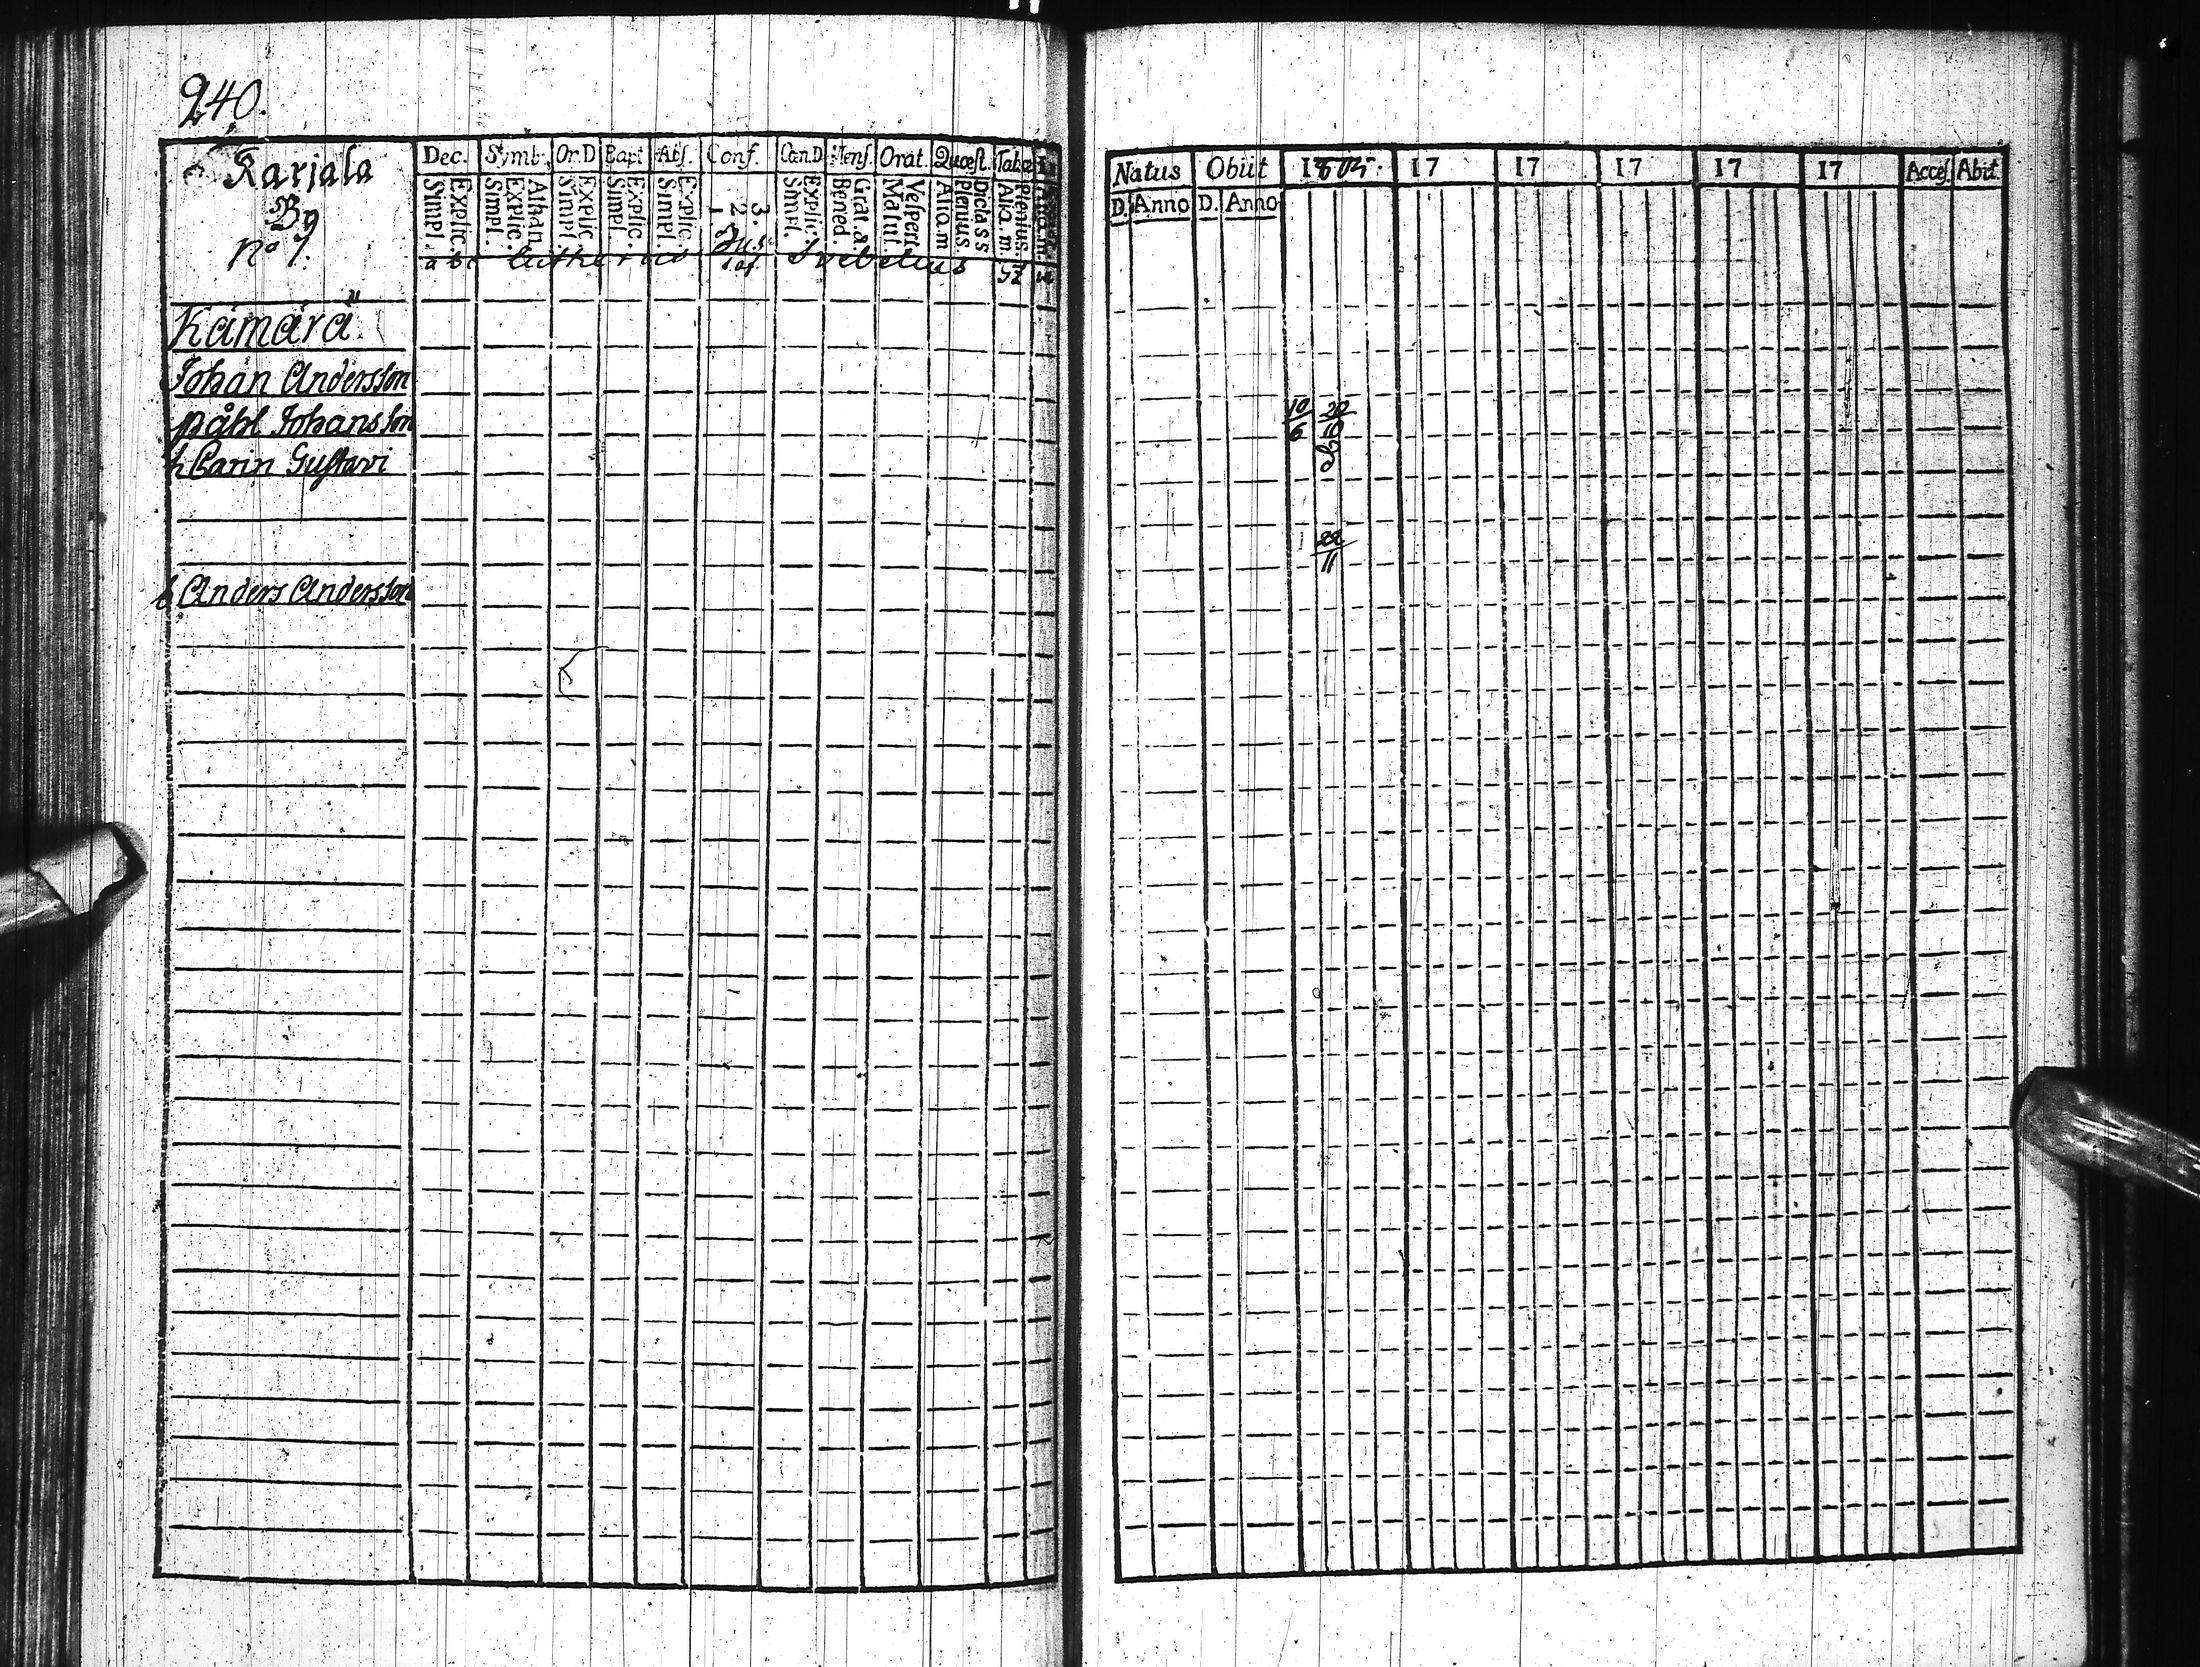 240.
Karjala
By
no 1.
Dec. Symb. Or.D Bapt Abs. Conf. Cœn.D Mens. Orat. Quæst. Tabœ
Simpl. Explic. Simpl. Explic. Athan. Simpl. Explic. Simpl. Explic. Simpl. Explic. 1 2. 3 Simpl. Explic. Bened. Grat. a. Matut. Vespert. Aliq. m Plenius Dicta s s Aliq. m Plenius.
abc Lutherus Svebelius
Kämärä
Johan Andersson
påhl Johansson
h Carin Gustavi
b Anders Andersson
Natus Obiit 1805. 17 17 17 17 17 Acces. Abit.
D. Anno D. Anno
10/6 20/10
22/11